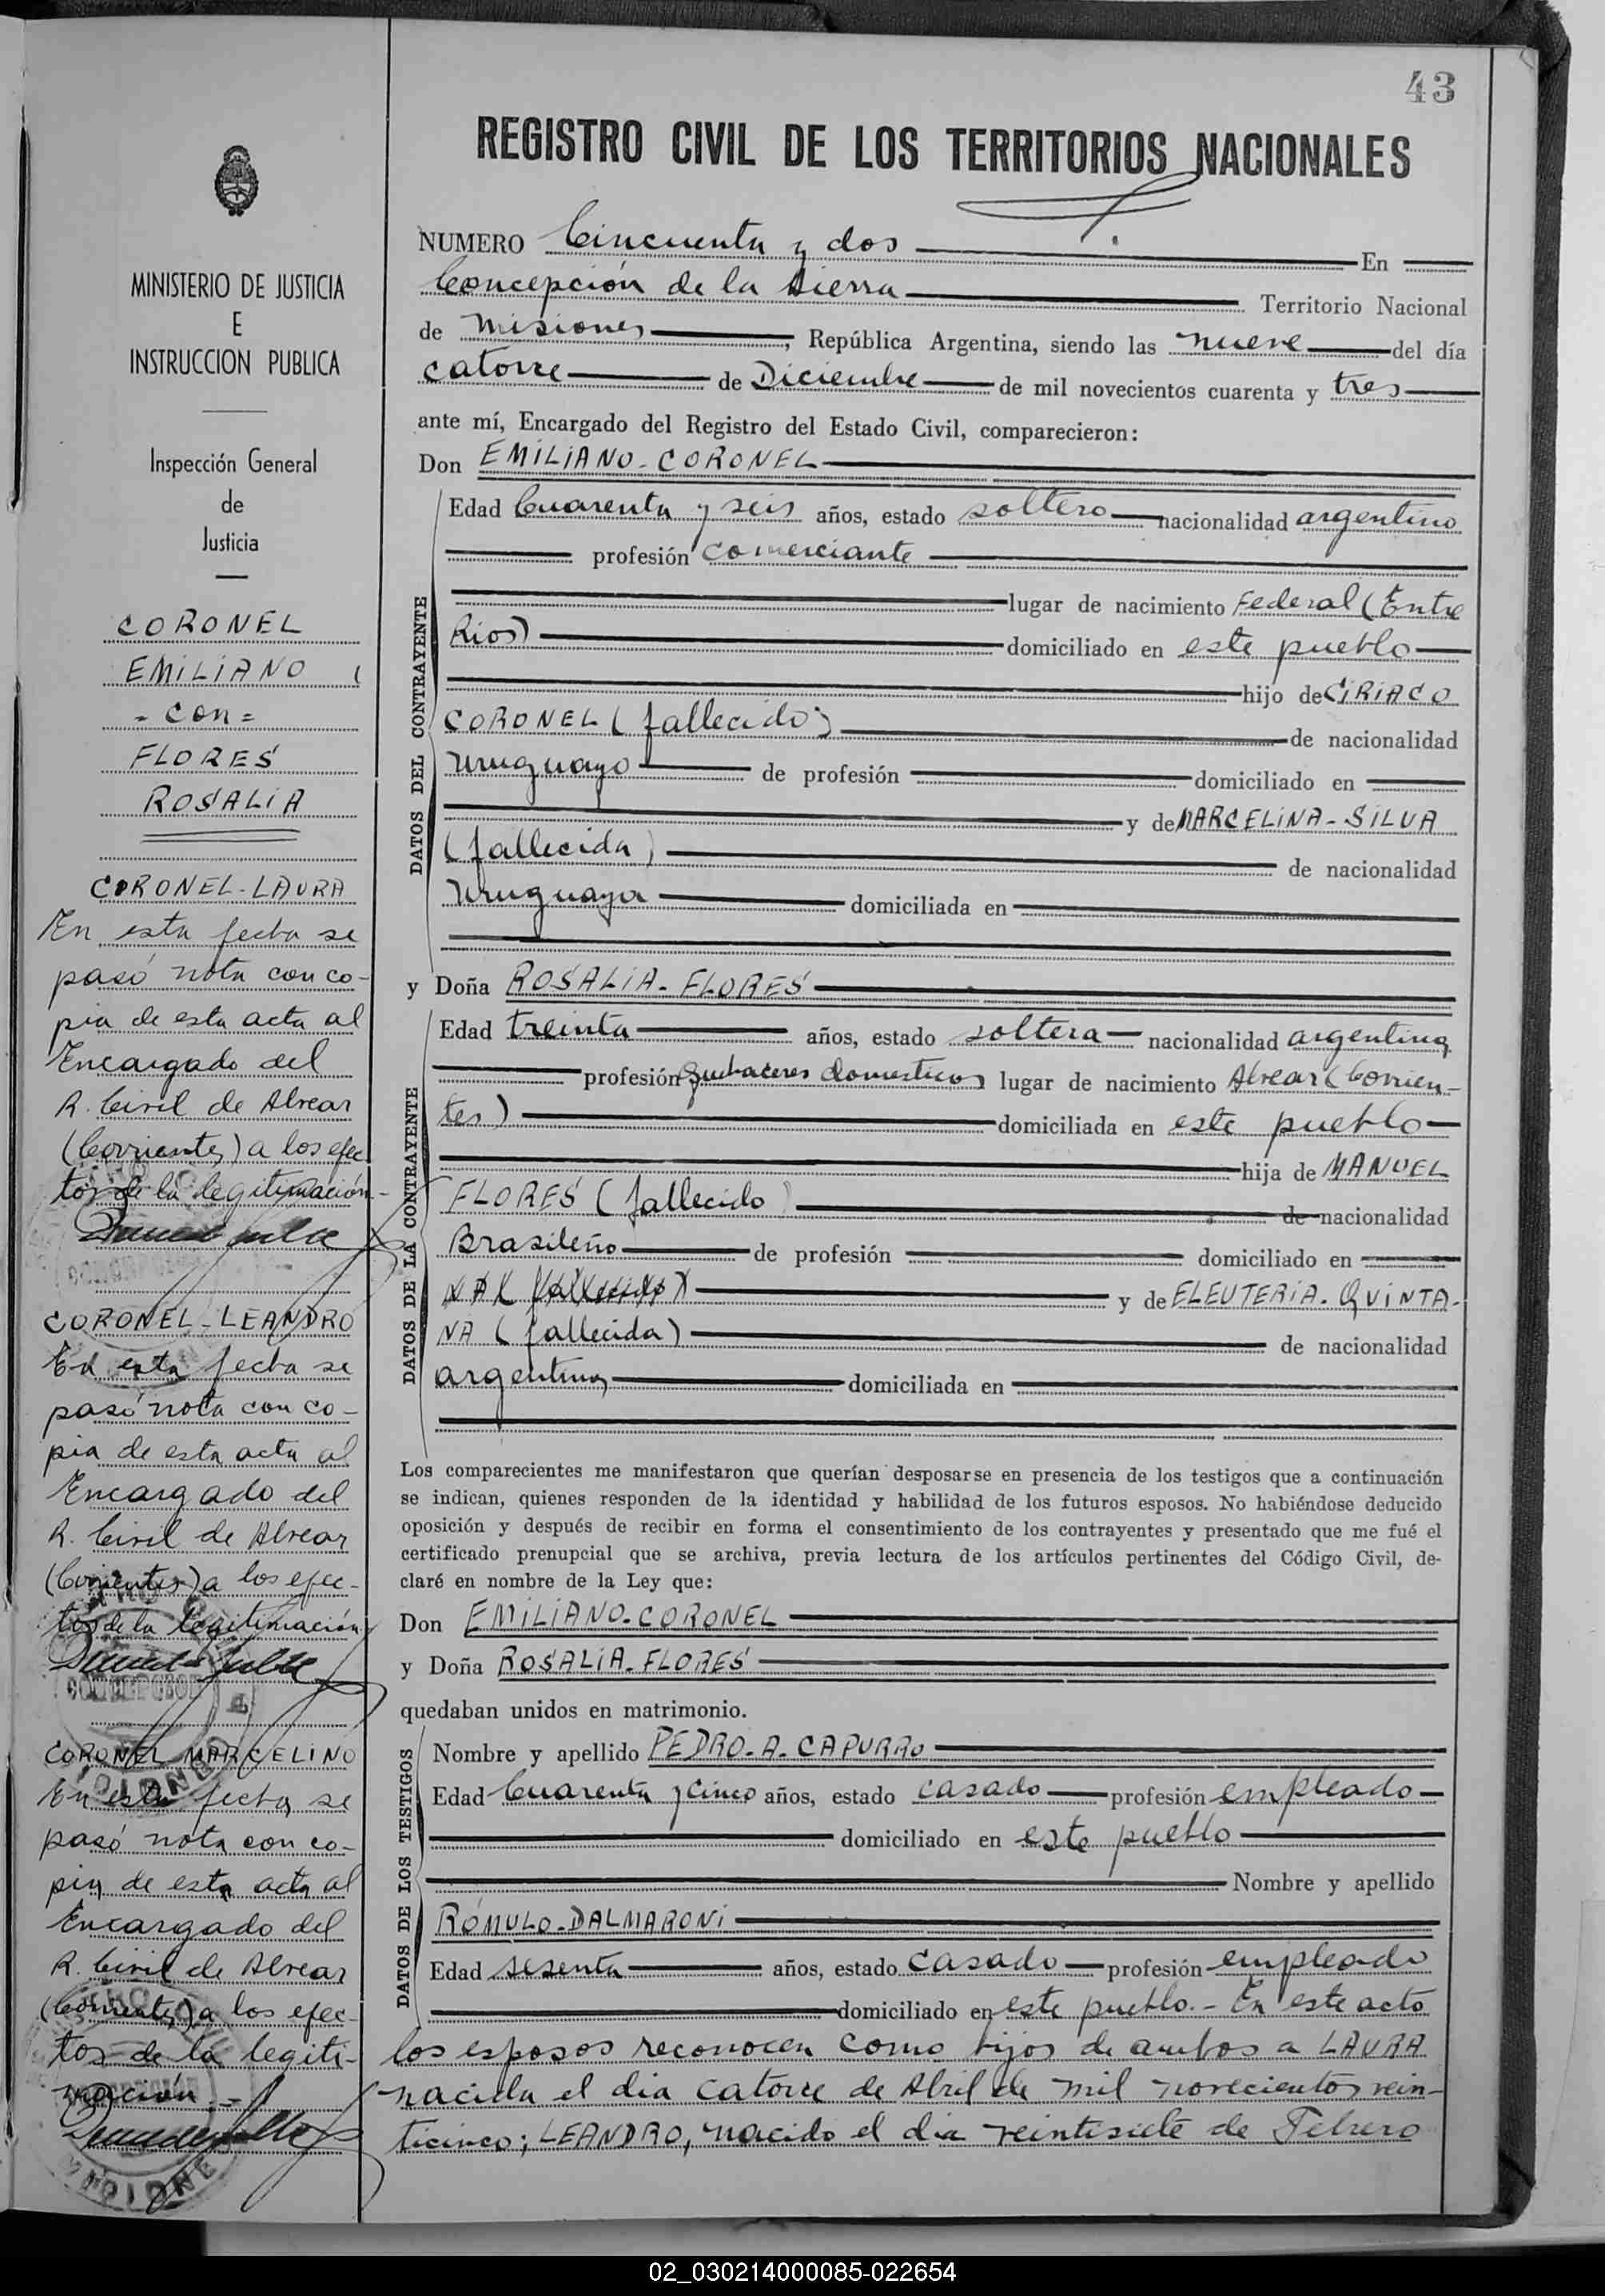 43
REGISTRO CIVIL DE LOS TERRITORIOS NACIONALES
MINISTERIO DE JUSTICIA
E
INSTRUCCION PUBLICA
Inspección General
de
Justicia
CORONEL
EMILIANO
= con =
FLORES
ROSALIA
CORONEL-LAURA
En esta fecha se
pasó nota con co-
pia de esta acta al
Encargado del
R. Civil de Alvear
(Corrientes) a los efec
tos de la legitimación.-
CORONEL-LEANDRO
En esta fecha se
pasó nota con co-
pia de esta acta al
Encargado del
R. Civil de Alvear
(Corrientes) a los efec-
tos de la legitimación
CONCEPCION
CORONEL MARCELINO
En esta fecha se
pasó nota con co-
pia de esta acta al
Encargado del
R. Civil de Alvear
(Corrientes) a los efec-
tos de la legiti-
mación.-
NUMERO Cincuenta y dos En
Concepción de la Sierra Territorio Nacional
de Misiones, República Argentina, siendo las nueve del día
catorce de Diciembre de mil novecientos cuarenta y tres
ante mí, Encargado del Registro del Estado Civil, comparecieron:
Don EMILIANO-CORONEL
DATOS DEL CONTRAYENTE
Edad Cuarenta y seis años, estado soltero nacionalidad argentino
profesión comerciante
lugar de nacimiento Federal (Entre
Rios) domiciliado en este pueblo
hijo de CIRIACO
CORONEL (fallecido) de nacionalidad
Uruguayo de profesión domiciliado en
y de MARCELINA-SILVA
(fallecida) de nacionalidad
Uruguaya domiciliada en
y Doña ROSALIA-FLORES
DATOS DE LA CONTRAYENTE
Edad treinta años, estado soltera nacionalidad argentina
profesión quehaceres domesticos lugar de nacimiento Alvear (Corrien-
tes) domiciliada en este pueblo
hija de MANUEL
FLORES (fallecido) de nacionalidad
Brasileño de profesión domiciliado en
y de ELEUTERIA-QUINTA-
NA (fallecida) de nacionalidad
argentina domiciliada en
Los comparecientes me manifestaron que querían desposarse en presencia de los testigos que a continuación
se indican, quienes responden de la identidad y habilidad de los futuros esposos. No habiéndose deducido
oposición y después de recibir en forma el consentimiento de los contrayentes y presentado que me fué el
certificado prenupcial que se archiva, previa lectura de los artículos pertinentes del Código Civil, de-
claré en nombre de la Ley que:
Don EMILIANO-CORONEL
y Doña ROSALIA-FLORES
quedaban unidos en matrimonio.
DATOS DE LOS TESTIGOS
Nombre y apellido PEDRO-A-CAPURRO
Edad Cuarenta y cinco años, estado casado profesión empleado
domiciliado en este pueblo
Nombre y apellido
RÓMULO-DALMARONI
Edad sesenta años, estado casado profesión empleado
domiciliado en este pueblo.- En este acto
los esposos reconocen como hijos de ambos a LAURA
nacida el dia catorce de Abril de mil novecientos vein-
ticinco; LEANDRO, nacido el dia veintisiete de Febrero
02_030214000085-022654